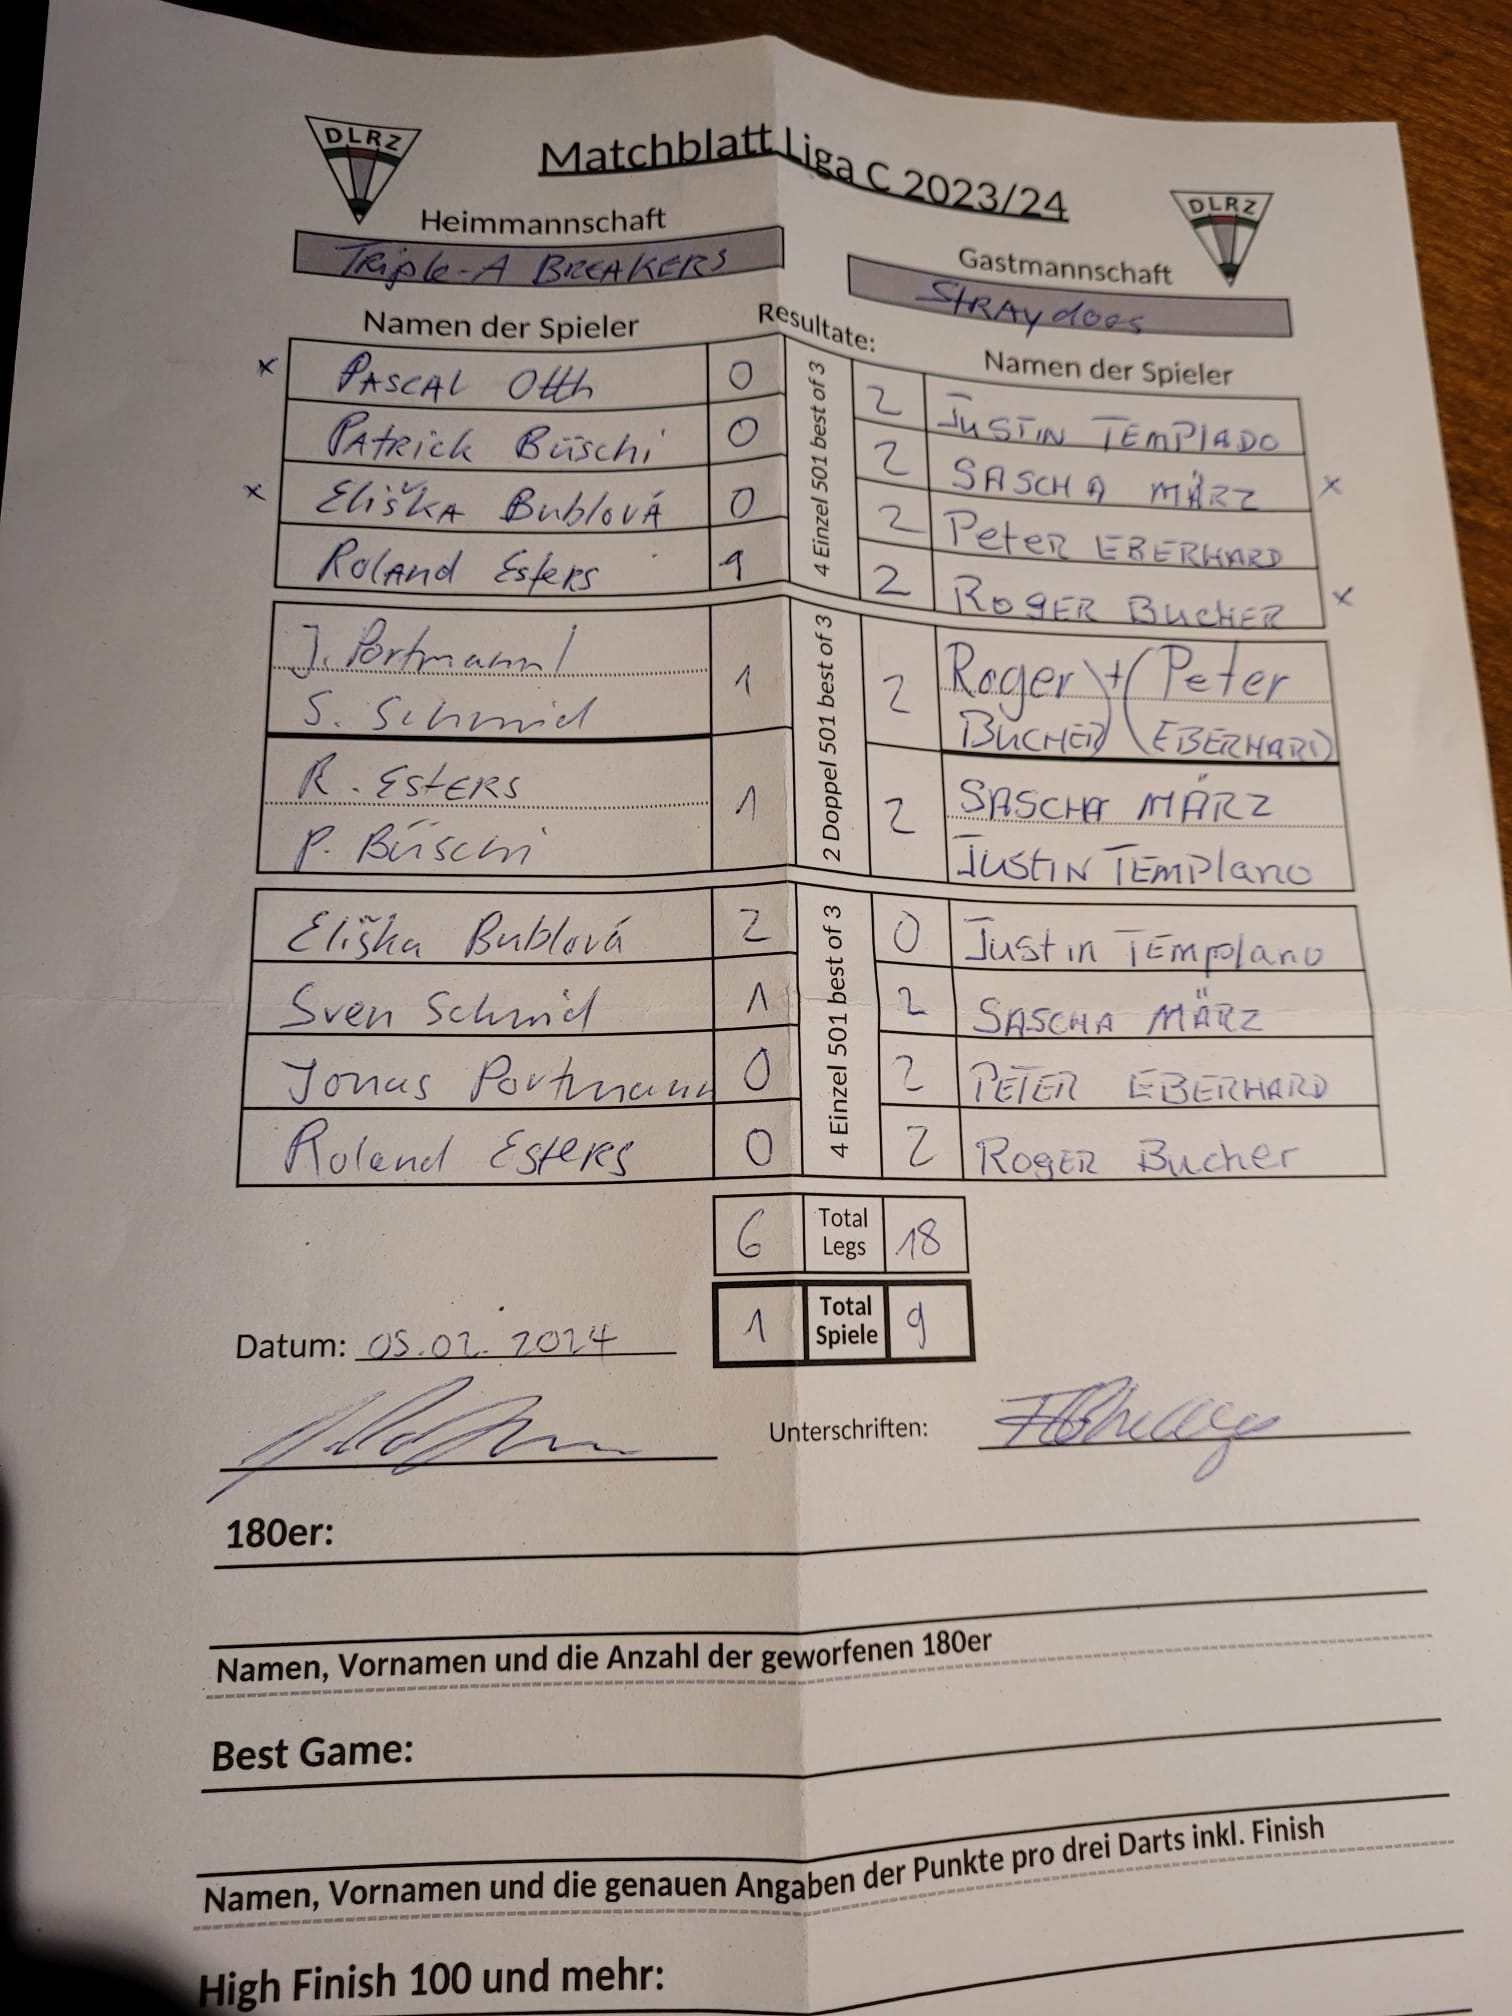 DLRZ
Matchblatt Liga C 2023/24
DLRZ
Heimmannschaft
Gastmannschaft
Triple-A BREAKERS
STRAYdogs
Namen der Spieler
Resultate:
Namen der Spieler
x PASCAL Otth 0
2 JUSTIN TEMPLADO
PATRICK Büschi 0
2 SASCHA MÄRZ x
x EliškA BublovÁ 0
2 PeteR EBERHARD
RolAnd Esters 1
2 ROGER BUCHER x
4 Einzel 501 best of 3
J. Portmann /
S. Schmid
1
2
Roger + Peter
BUCHER EBERHARD
R. ESTERS
P. Büschi
1
2
SASCHA MÄRZ
JUSTIN TEMPlano
2 Doppel 501 best of 3
Eliška Bublová 2
0 Justin TEMplano
Sven Schmid 1
2 SASCHA MÄRZ
Jonas Portmann 0
2 PETER EBERHARD
Roland Esters 0
2 ROGER Bucher
4 Einzel 501 best of 3
6 Total Legs 18
1 Total Spiele 9
Datum: 05.02.2024
Unterschriften:
180er:
Namen, Vornamen und die Anzahl der geworfenen 180er
Best Game:
Namen, Vornamen und die genauen Angaben der Punkte pro drei Darts inkl. Finish
High Finish 100 und mehr: